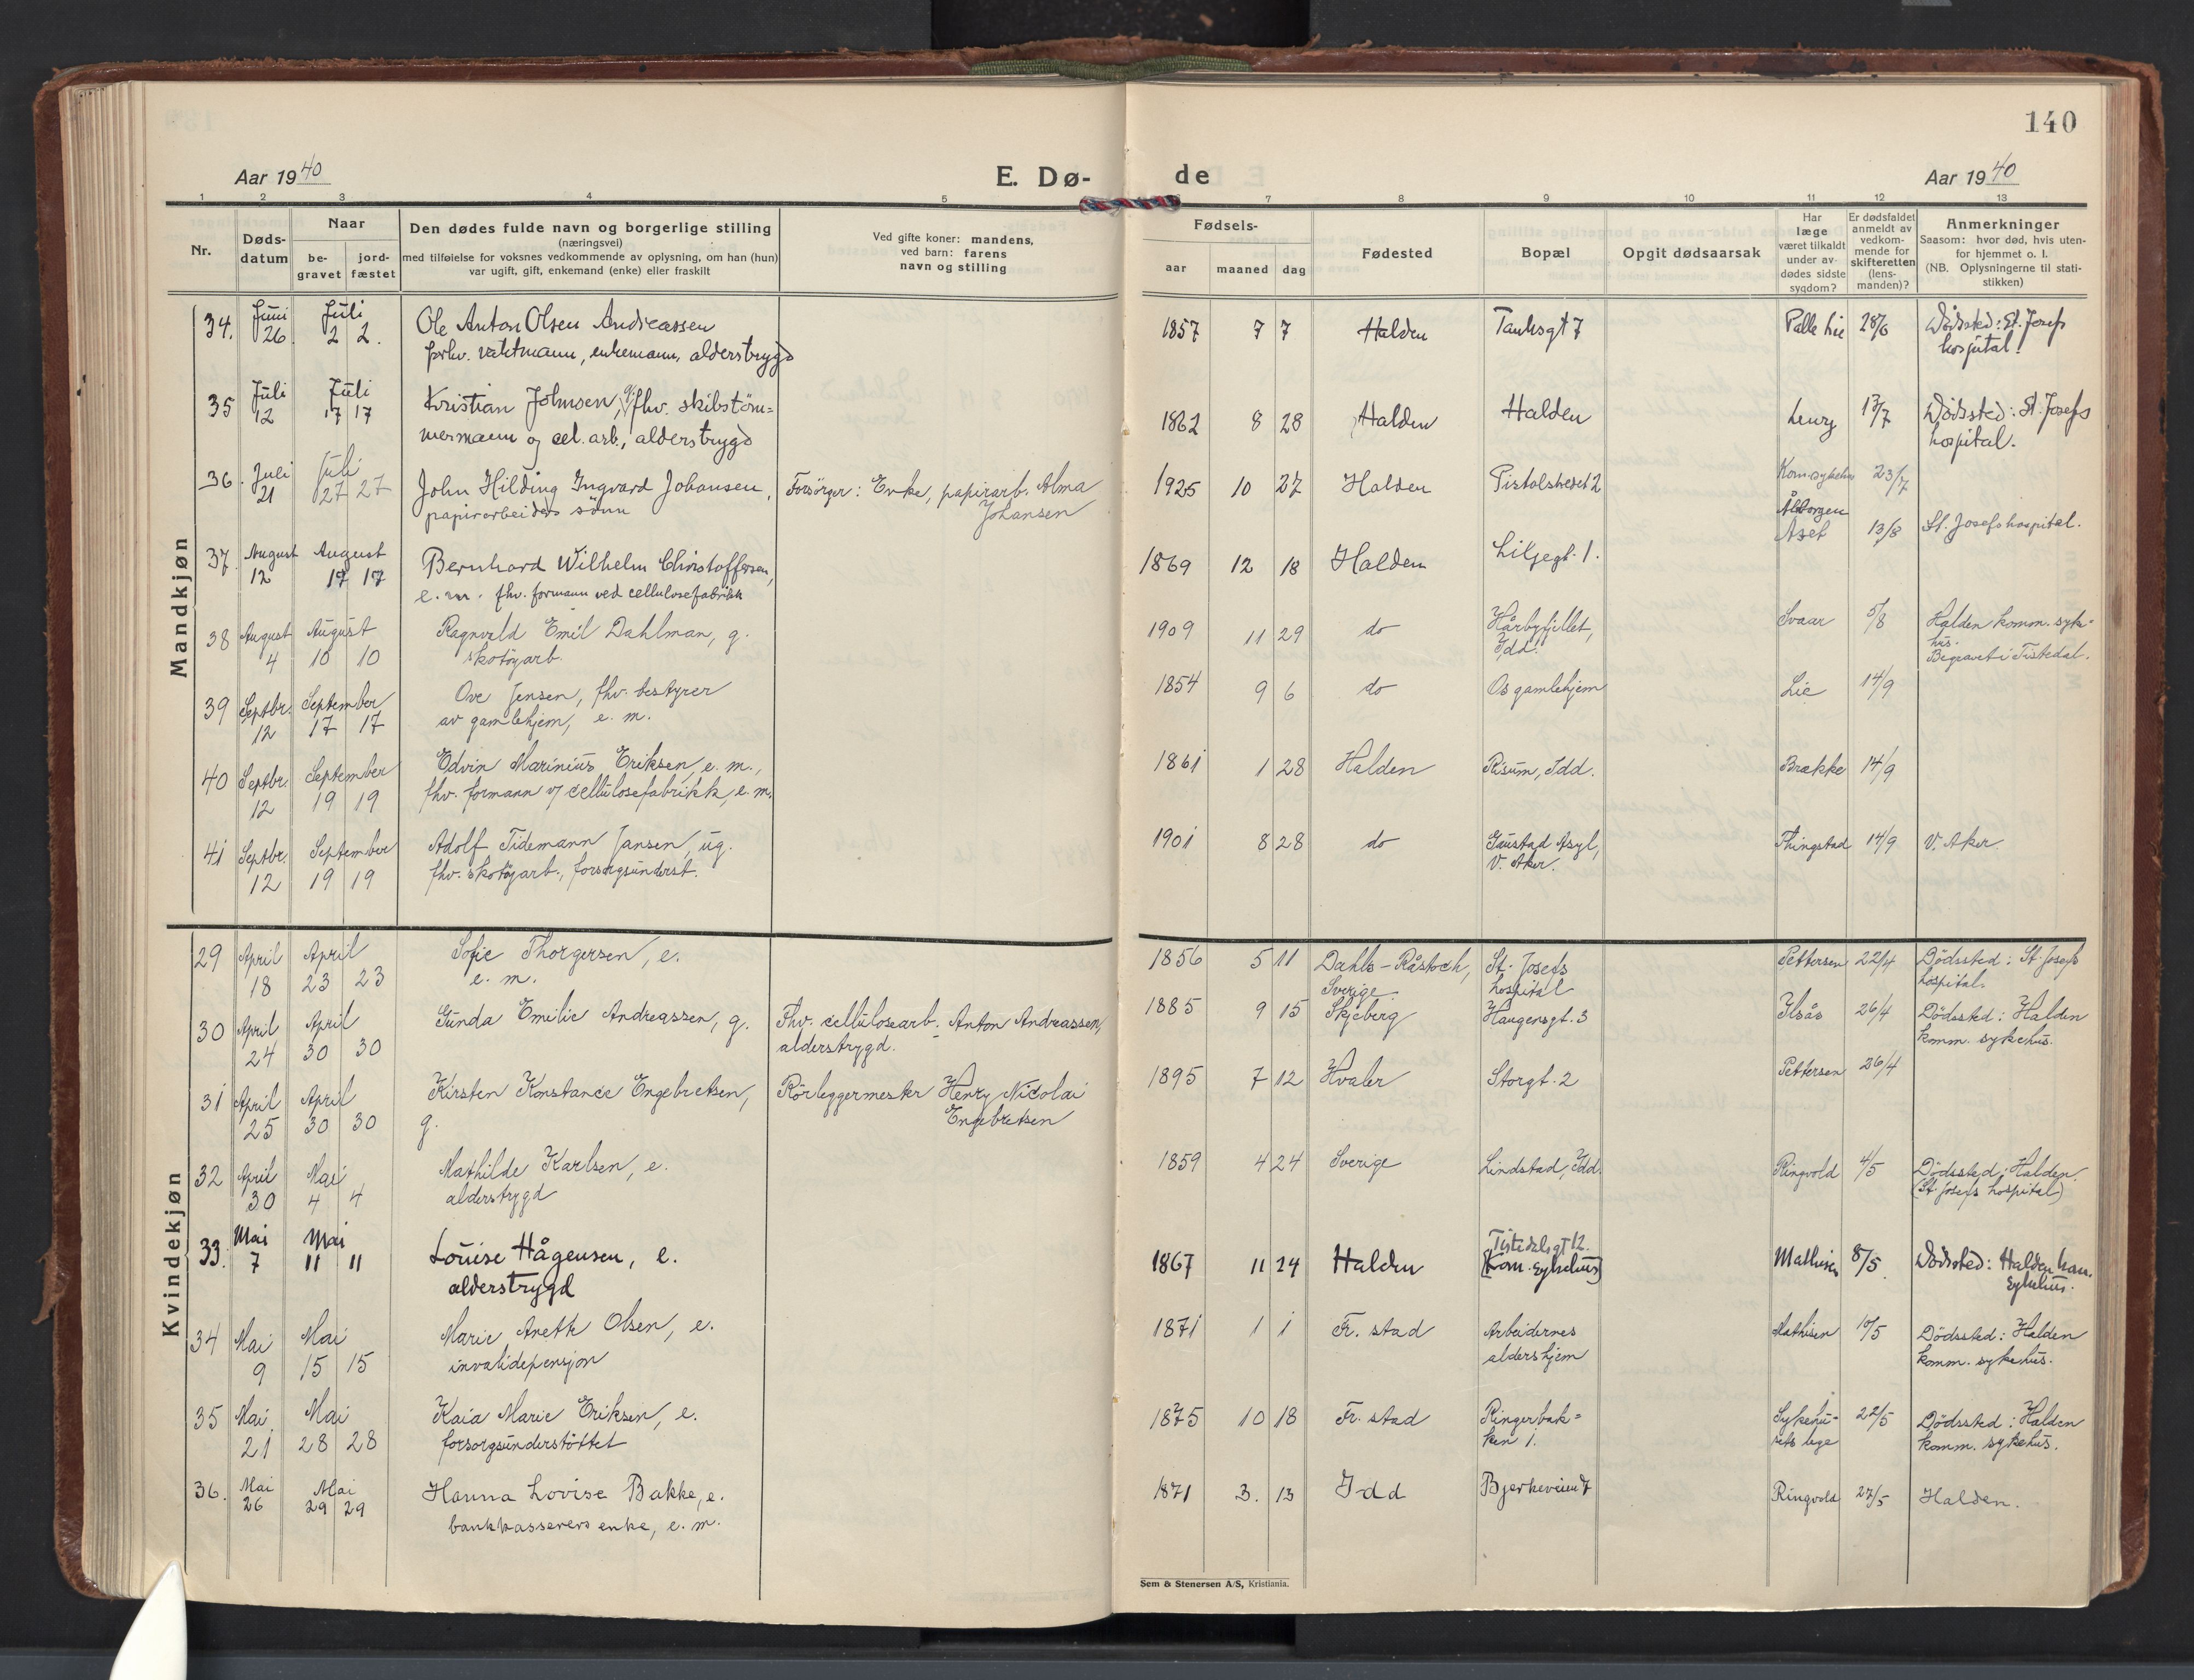 140
Aar 1940
E. Dø-
de
Aar 1940
1 2 3 4 5 7 8 9 10 11 12 13
Nr.
Døds-
datum
Naar
be-
gravet
jord-
fæstet
Den dødes fulde navn og borgerlige stilling
(næringsvei)
med tilføielse for voksnes vedkommende av oplysning, om han (hun)
var ugift, gift, enkemand (enke) eller fraskilt
Ved gifte koner: mandens,
ved barn: farens
navn og stilling
Fødsels-
aar maaned dag
Fødested
Bopæl
Opgit dødsaarsak
Har
læge
været tilkaldt
under av-
dødes sidste
sygdom?
Er dødsfaldet
anmeldt av
vedkom-
mende for
skifteretten
(lens-
manden)?
Anmerkninger
Saasom: hvor død, hvis uten-
for hjemmet o. l.
(NB. Oplysningerne til stati-
stikken)
Mandkjøn
34. Juni 26. Juli 2 2. Ole Anton Olsen Andreassen 1857 7 7 Halden Tanksgt 7 Palle Lie 28/6 Dödsted: St. Josefs
forhv. vaktmann, enkemann, alderstrygd hospital.
35 Juli 12 Juli 17 17 Kristian Johnsen, g. fhv. skibstöm= 1862 8 28 Halden Halden Leury 13/7 Dödssted: St. Josefs
mermann og cel. arb., alderstrygd hospital.
36. Juli 21 Juli 27 27 John Hilding Ingvard Johansen, Forsörger: Enke, papirarb. Alma 1925 10 27 Halden Pistolstredet 2 Kom. sykehus 23/7
papirarbeiders sönn Johansen
37. August 12 August 17 17 Bernhard Wilhelm Christoffersen, 1869 12 18 Halden Liljegt. 1. Aset 13/8 St. Josefs hospital.
e. m. fhv. formann ved cellulosefabrikk
38 August 4 August 10 10 Ragnvald Emil Dahlman, g. 1909 11 29 do Hårbyfjillet, Svaar 5/8 Halden komm. syke=
skotöyarb. Idd. hus.
Begravet i Tistedal.
39 Septbr. 12 September 17 17 Ove Jensen, fhv. bestyrer 1854 9 6 do Os gamlehjem Lie 14/9
av gamlehjem, e. m.
40 Septbr. 12 September 19 19 Edvin Marinius Eriksen, e. m., 1861 1 28 Halden Risum, Idd. Brække 14/9
fhv. formann v/ cellulosefabrikk, e. m.
41 Septbr. 12 September 19 19 Adolf Tidemann Jansen, ug. 1901 8 28 do Gaustad Asyl, Thingstad 14/9 V. Aker.
fhv. skotöyarb., forsorgsunderst. V. Aker.
Kvindekjøn
29 April 18 April 23 23 Sofie Thorgersen, e. 1856 5 11 Dahls-Råstock, St. Josefs Pettersen 22/4 Dödssted: St. Josefs
e. m. Sverige hospital hospital.
30 April 24 April 30 30 Gunda Emilie Andreassen, g. Fhv. cellulosearb. Anton Andreassen, 1885 9 15 Skjeberg Haugensgt. 3 Ilsås 26/4 Dödssted: Halden
alderstrygd. komm. sykehus.
31 April 25 April 30 30 Kirsten Konstance Engebretsen, Rörleggermester Henry Nicolai 1895 7 12 Hvaler Storgt. 2 Pettersen 26/4
g. Engebretsen
32 April 30 Mai 4 4 Mathilde Karlsen, e. 1859 4 24 Sverige Lindstad, Idd. Ringvold 4/5 Dödssted: Halden.
alderstrygd (St. Josefs hospital)
33. Mai 7 Mai 11 11 Louise Hågensen, e. 1867 11 24 Halden Tistedalsgt 12. Mathisen 8/5 Dödssted: Halden kom.
alderstrygd (Kom. Sykehus) Sykehus.
34 Mai 9 Mai 15 15 Marie Aneth Olsen, e. 1871 1 1 Fr. stad Arbeidernes Mathisen 10/5 Dödssted: Halden
invalidepensjon aldershjem komm. sykehus.
35 Mai 21 Mai 28 28 Kaia Marie Eriksen, e. 1875 10 18 Fr. stad Ringerbak= Sykehu- 22/5 Dödssted: Halden
forsorgsunderstöttet ken 1. sets lege komm. sykehus.
36. Mai 26 Mai 29 29 Hanna Lovise Bakke, e. 1871 3. 13 Idd Bjerkeveien 7 Ringvold 27/5 Halden.
bankkasserers enke, e. m.
Sem & Stenersen A/S, Kristiania.